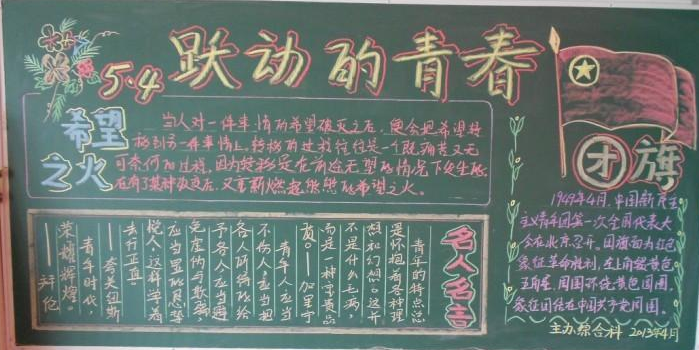 5.4 跃动的青春
希望
之火
当人对一件事情的希望破灭之后,便会把希望转
移到另一件事情上。转移的过程往往是一个既痛苦又无
可奈何的过程,因为转移是在前途无望的情况下发生的
在有了某种
又重新燃起熊熊的希望之火。
名人名言
青年的特点总
是怀抱着各种理
想和幻想。这并
不是什么毛病,
而是一种宝贵品
质。——加里宁
青年人应当
不伤人,应当把
各人所得的给
予各人,应当避
免虚伪与欺骗,
应当显得恳挚
悦人,这样学着
去行正直。
——夸美纽斯
青年时代,
荣耀辉煌。
——拜伦
团旗
1949年4月,中国新民主
主义青年团第一次全国代表大
会在北京召开。团旗面为红色
象征革命胜利,左上角缀黄色
五角星,周围环绕黄色圆圈,
象征团结在中国共产党周围。
主办:综合科 2013年4月